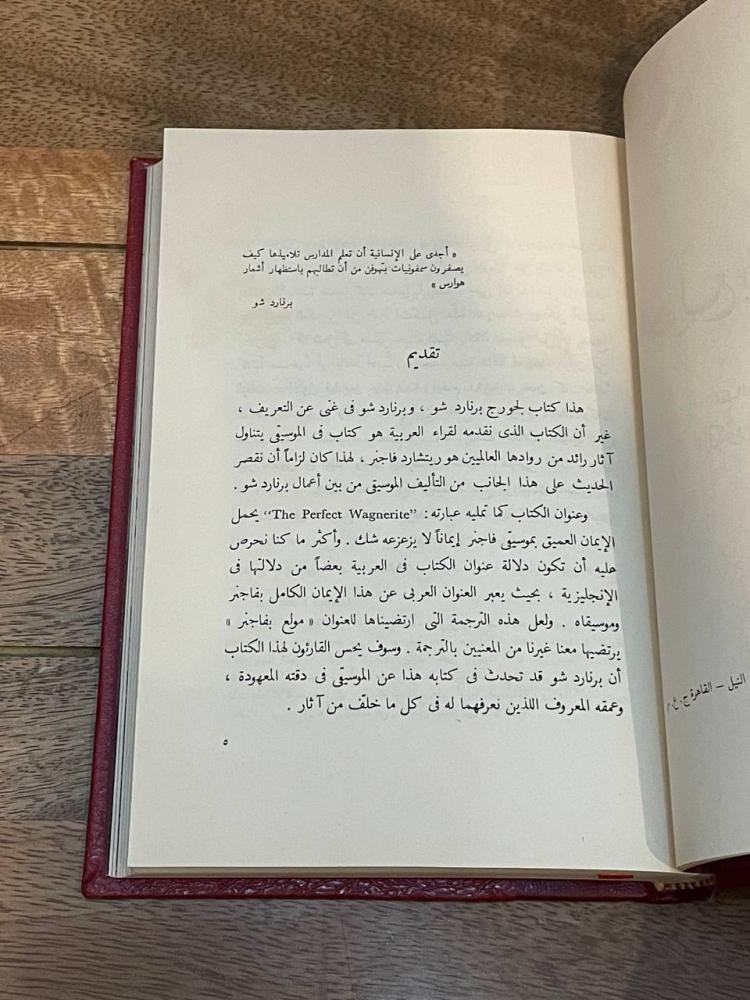 « أجدى على الإنسانية أن تعلم المدارس تلاميذها كيف
يصفرون سمفونيات بتهوفن من أن تطالبهم باستظهار أشعار
هوارس »
برنارد شو
تقديم
هذا كتاب لجورج برنارد شو ، وبرنارد شو فى غنى عن التعريف ،
غير أن الكتاب الذى نقدمه لقراء العربية هو كتاب فى الموسيقى يتناول
آثار رائد من روادها العالميين هو ريتشارد فاجنر ، لهذا كان لزاماً أن نقصر
الحديث على هذا الجانب من التأليف الموسيقى من بين أعمال برنارد شو .
وعنوان الكتاب كما تمليه عبارته : “The Perfect Wagnerite” يحمل
الإيمان العميق بموسيقى فاجنر إيماناً لا يزعزعه شك . وأكثر ما كنا نحرص
عليه أن تكون دلالة عنوان الكتاب فى العربية بعضاً من دلالتها فى
الإنجليزية ، بحيث يعبر العنوان العربى عن هذا الإيمان الكامل بفاجنر
وموسيقاه . ولعل هذه الترجمة التى ارتضيناها للعنوان « مولع بفاجنر »
يرتضيها معنا غيرنا من المعنيين بالترجمة . وسوف يحس القارئون لهذا الكتاب
أن برنارد شو قد تحدث فى كتابه هذا عن الموسيقى فى دقته المعهودة ،
وعمقه المعروف اللذين نعرفهما له فى كل ما خلّف من آثار .
٥
النيل – القاهرة ج . ع . م